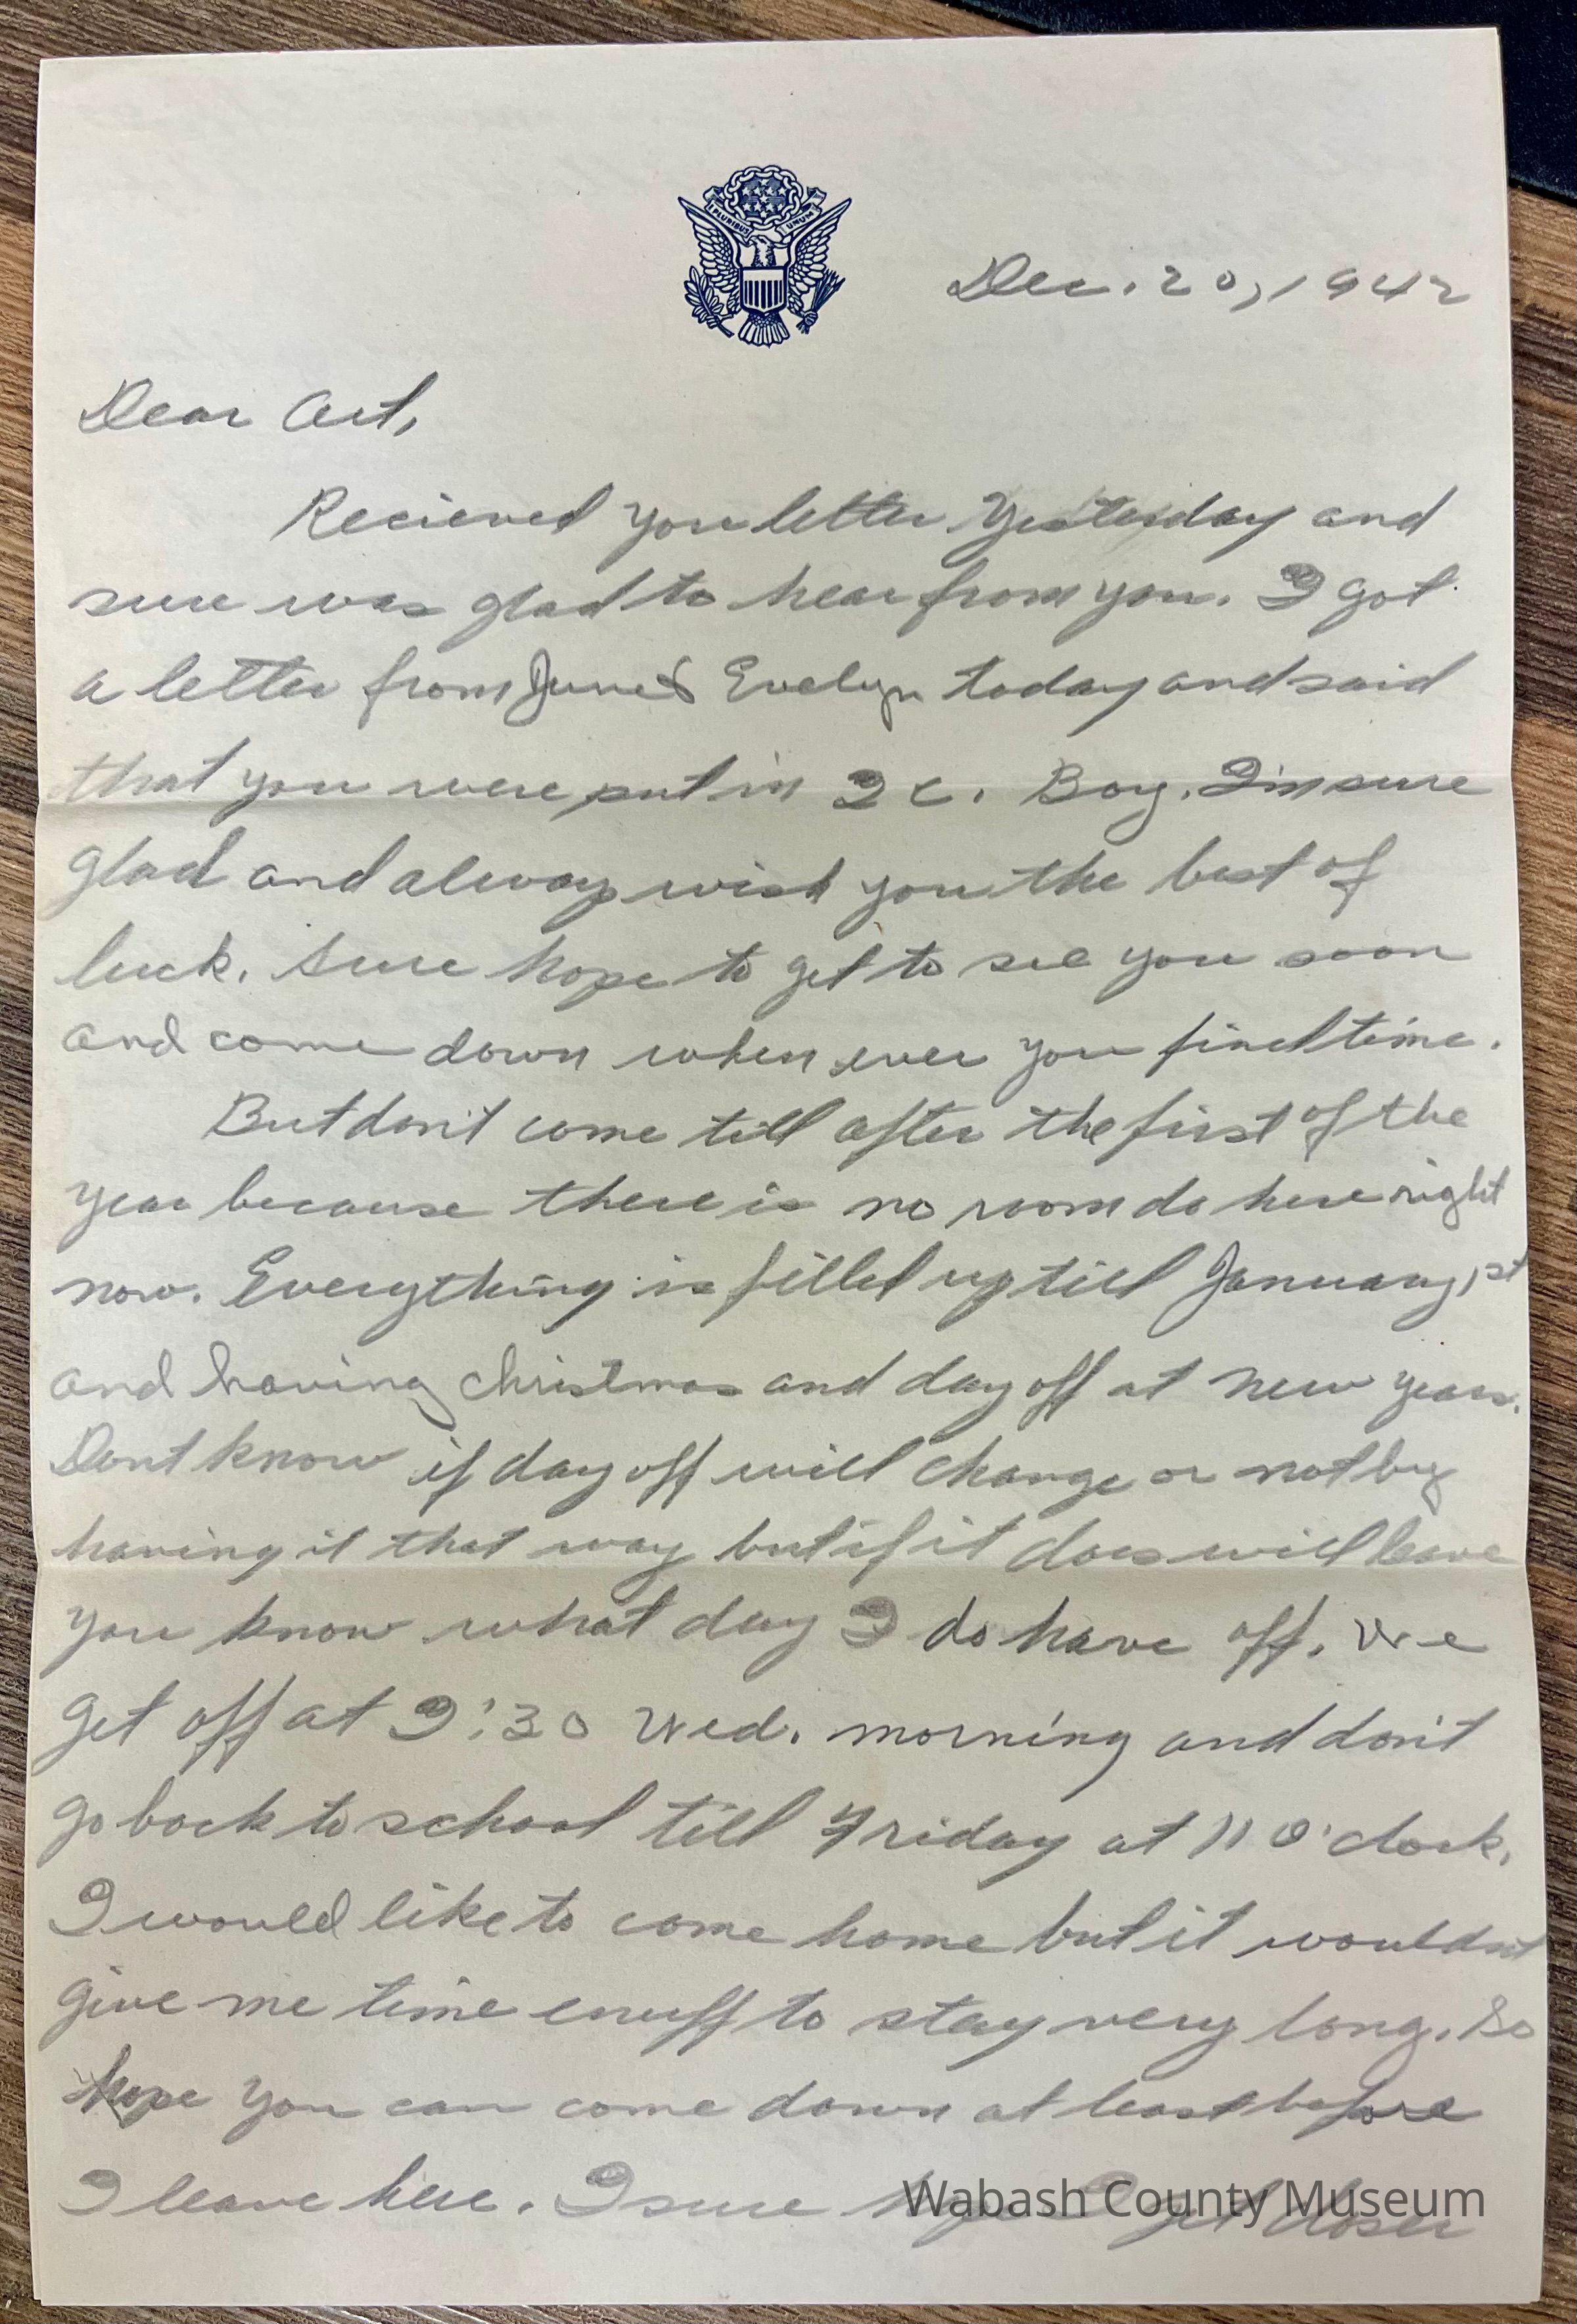 E PLURIBUS UNUM
Dec. 20, 1942
Dear Art,
Recieved your letter yesterday and
sure was glad to hear from you. I got
a letter from June & Evelyn today and said
that you were put in 2 C. Boy, I'm sure
glad and always wish you the best of
luck. Sure hope to get to see you soon
and come down when ever you find time.
But don't come till after the first of the
year because there is no room do here right
now. Everything is filled up till January 1st
and having christmas and day off at new years.
Dont know if day off will change or not by
having it that way but if it does will leave
you know what day I do have off. We
get off at 9:30 Wed. morning and don't
go back to school till Friday at 11 O'clock.
I would like to come home but it wouldn't
give me time enuff to stay very long. So
hope you can come down at least before
I leave here. I sure hope I get closer
Wabash County Museum